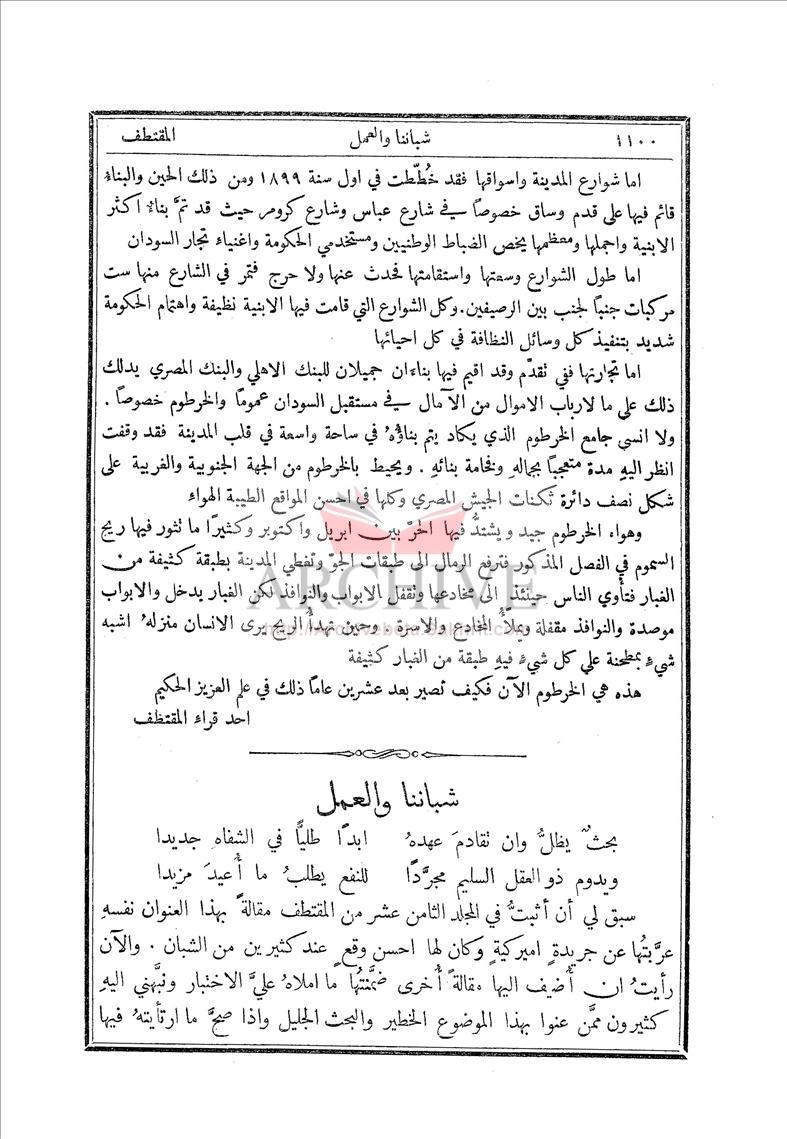 ١١٠٠ شباننا والعمل المقتطف
اما شوارع المدينة واسواقها فقد خُطّطت في اول سنة ١٨٩٩ ومن ذلك الحين والبناءُ
قائم فيها على قدم وساق خصوصاً في شارع عباس وشارع كرومر حيث قد تمَّ بناءُ اكثر
الابنية واجملها ومعظمها يخص الضباط الوطنيين ومستخدمي الحكومة واغنياء تجار السودان
اما طول الشوارع وسعتها واستقامتها فحدث عنها ولا حرج فتمر في الشارع منها ست
مركبات جنباً لجنب بين الرصيفين. وكل الشوارع التي قامت فيها الابنية نظيفة واهتمام الحكومة
شديد بتنفيذ كل وسائل النظافة في كل احيائها
اما تجارتها ففي تقدّم وقد اقيم فيها بناءان جميلان للبنك الاهلي والبنك المصري يدلك
ذلك على ما لارباب الاموال من الآمال في مستقبل السودان عموماً والخرطوم خصوصاً .
ولا انسى جامع الخرطوم الذي يكاد يتم بناؤهُ في ساحة واسعة في قلب المدينة فقد وقفت
انظر اليهِ مدة متعجباً بجمالهِ وفخامة بنائهِ . ويحيط بالخرطوم من الجهة الجنوبية والغربية على
شكل نصف دائرة ثكنات الجيش المصري وكلها في احسن المواقع الطيبة الهواء
وهواء الخرطوم جيد ويشتدُّ فيها الحرّ بين ابريل واكتوبر وكثيرًا ما تثور فيها ريح
السموم في الفصل المذكور فترفع الرمال الى طبقات الجوّ وتغطي المدينة بطبقة كثيفة من
الغبار فتأوي الناس حينئذٍ الى مخادعها وتقفل الابواب والنوافذ لكن الغبار يدخل والابواب
موصدة والنوافذ مقفلة ويملأُ المخادع والاسرة . وحين تهدأُ الريح يرى الانسان منزلهُ اشبه
شيءٍ بمطحنة على كل شيءٍ فيهِ طبقة من الغبار كثيفة
هذه هي الخرطوم الآن فكيف تصير بعد عشرين عاماً ذلك في علم العزيز الحكيم
احد قراء المقتظف
شباننا والعمل
بحثٌ يظلُّ وان تقادمَ عهدهُ ابدًا طليًّا في الشفاهِ جديدا
ويدوم ذو العقل السليم مجرَّدًا للنفع يطلبُ ما أُعيدَ مزيدا
سبق لي أن أثبتُّ في المجلد الثامن عشر من المقتطف مقالةً بهذا العنوان نفسهِ
عرَّبتُها عن جريدةٍ اميركيةٍ وكان لها احسن وقعٍ عند كثيرين من الشبان . والآن
رأيتُ ان أُضيف اليها مقالةً أُخرى ضمَّنتُها ما املاهُ عليَّ الاختبار ونبَّهني اليهِ
كثيرون ممَّن عنوا بهذا الموضوع الخطير والبحث الجليل واذا صحَّ ما ارتأيتهُ فيها
ARCHIVE